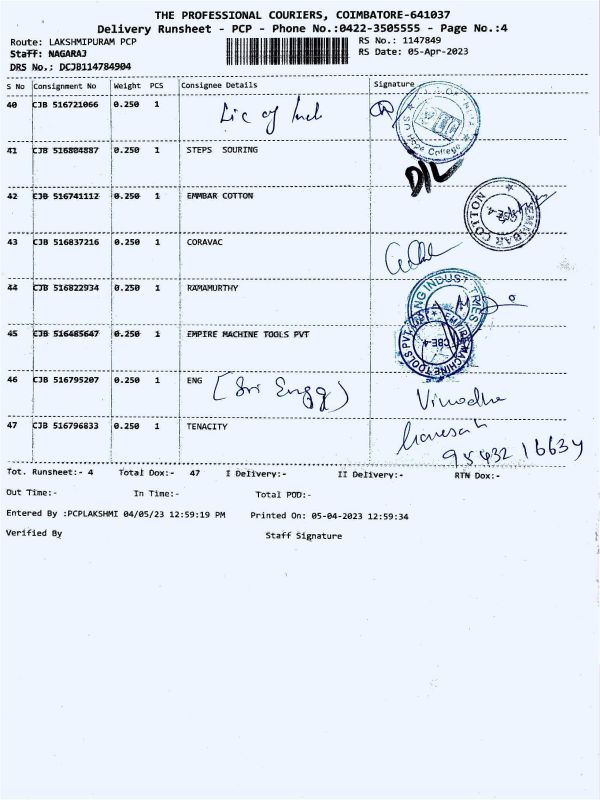 THE PROFESSIONAL COURIERS, COIMBATORE-641037
Delivery Runsheet - PCP - Phone No.:0422-3505555 - Page No.:4
Route: LAKSHMIPURAM PCP RS No.: 1147849
Staff: NAGARAJ RS Date: 05-Apr-2023
DRS No.: DCJB114784904
S No Consignment No Weight PCS Consignee Details Signature
40 CJB 516721066 0.250 1 Lic of Ind
LIC
Hope College
41 CJB 516804887 0.250 1 STEPS SOURING D/L
42 CJB 516741112 0.250 1 EMMBAR COTTON
EMMBAR COTTON
CBE-4
43 CJB 516837216 0.250 1 CORAVAC
44 CJB 516822934 0.250 1 RAMAMURTHY
INDUSTRIES
45 CJB 516485647 0.250 1 EMPIRE MACHINE TOOLS PVT
EMPIRE MACHINE TOOLS PVT
CBE-4
46 CJB 516795207 0.250 1 ENG (Sri Engg) Vinodha
47 CJB 516796833 0.250 1 TENACITY
Tot. Runsheet:- 4 Total Dox:- 47 I Delivery:- II Delivery:- RTN Dox:-
Out Time:- In Time:- Total POD:-
Entered By :PCPLAKSHMI 04/05/23 12:59:19 PM Printed On: 05-04-2023 12:59:34
Verified By Staff Signature